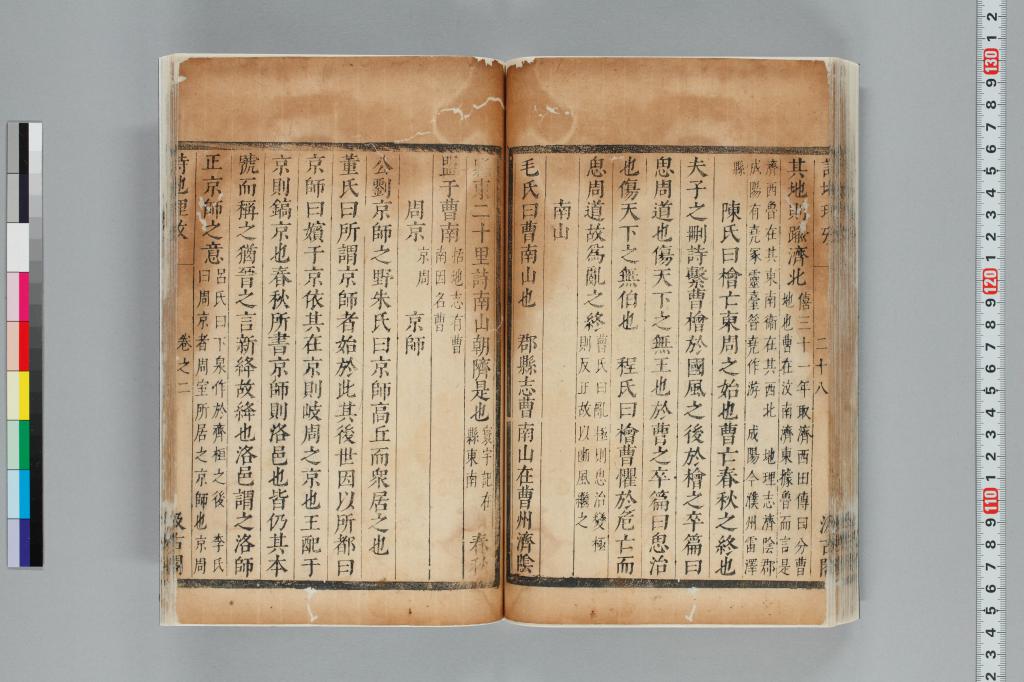 其地則踰濟北僖三十一年取濟西田傳曰分曹
地也曹在汶南濟東據魯而言是
濟西魯在其東南衛在其西北 地理志濟陰郡
成陽有堯冢靈臺晉堯作游 成陽今濮州雷澤
縣
陳氏曰檜亡東周之始也曹亡春秋之終也
夫子之刪詩繫曹檜於國風之後於檜之卒篇曰
思周道也傷天下之無王也於曹之卒篇曰思治
也傷天下之無伯也 程氏曰檜曹懼於危亡而
思周道故爲亂之終曹氏曰亂極則思治變極
則反正故以豳風繼之
南山
毛氏曰曹南山也 郡縣志曹南山在曹州濟陰
縣東二十里詩南山朝隮是也寰宇記在
縣東南 春秋
盟于曹南括地志有曹
南因名曹
周京京周 京師
公劉京師之野朱氏曰京師高丘而衆居之也
董氏曰所謂京師者始於此其後世因以所都曰
京師曰嬪于京依其在京則岐周之京也王配于
京則鎬京也春秋所書京師則洛邑也皆仍其本
號而稱之猶晉之言新絳故絳也洛邑謂之洛師
正京師之意呂氏曰下泉作於齊桓之後 李氏
曰周京者周室所居之京師也京周
詩地理攷 卷之二 汲古閣
二十八